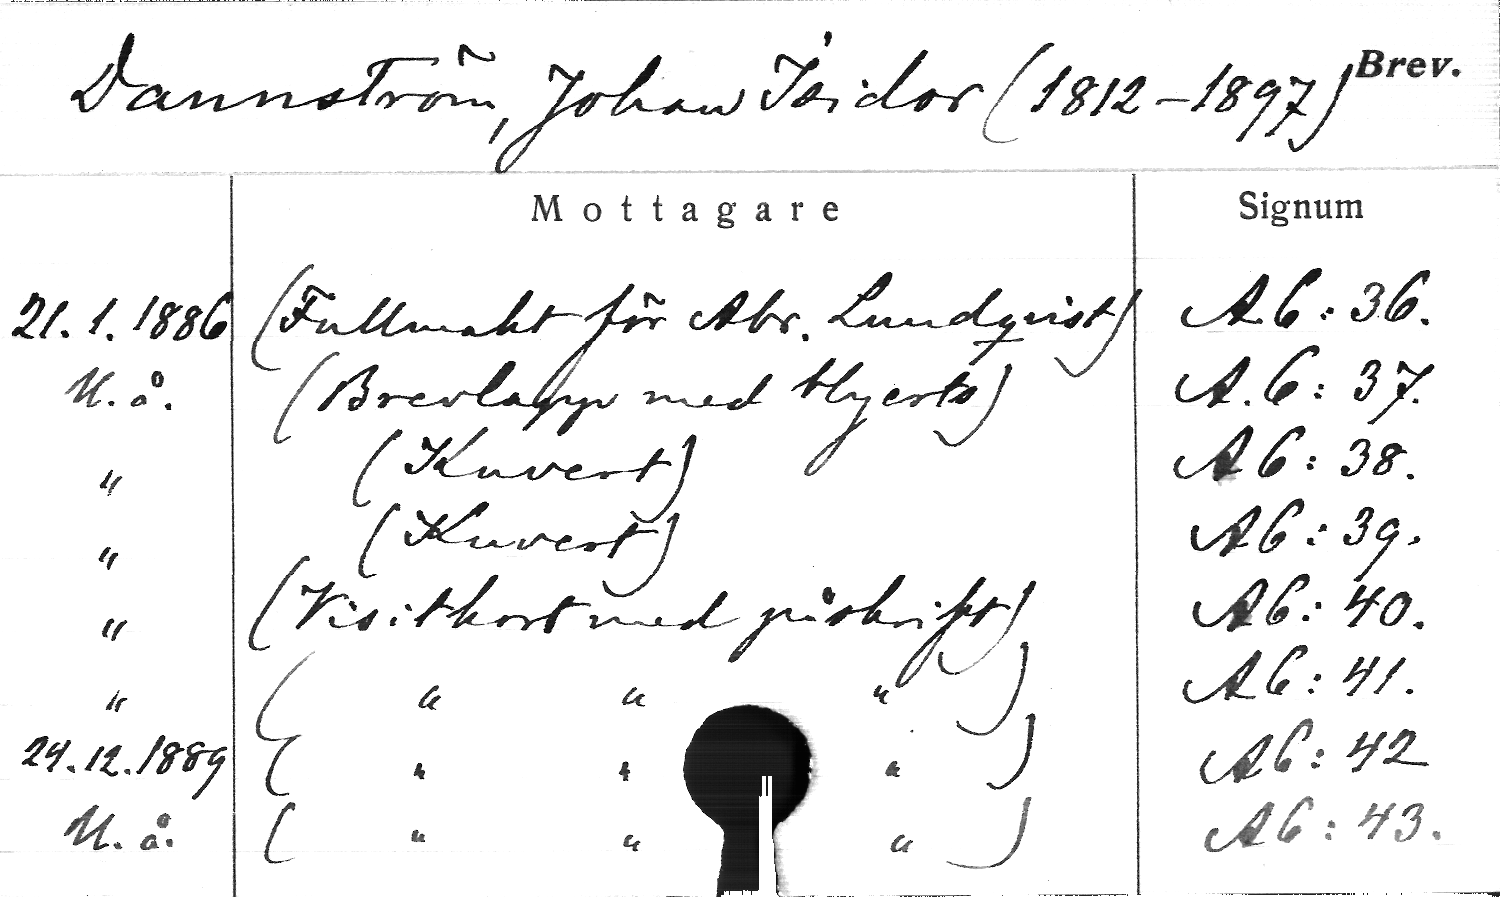 Dannström, Johan Isidor (1812-1897) Brev.
Mottagare Signum
21.1.1886 (Fullmakt för Abr. Lundqvist) A6:36.
U.å. (Brevlapp med blyerts) A.6:37.
" (Kuvert) A6:38.
" (Kuvert) A6:39.
" (Visitkort med påskrift) A6:40.
" ( " " " ) A6:41.
24.12.1889 ( " " " ) A6:42
U.å. ( " " " ) A6:43.